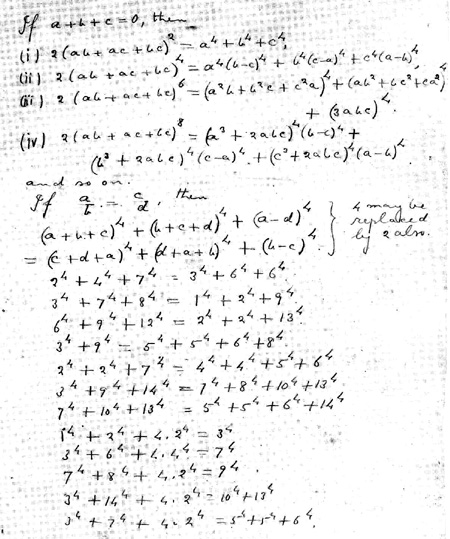 If a+b+c=0, then
(i) 2(ab+ac+bc)^2 = a^4+b^4+c^4,
(ii) 2(ab+ac+bc)^4 = a^4(b-c)^4 + b^4(c-a)^4 + c^4(a-b)^4,
(iii) 2(ab+ac+bc)^6 = (a^2b+b^2c+c^2a)^4 + (ab^2+bc^2+ca^2)^4
+ (3abc)^4.
(iv) 2(ab+ac+bc)^8 = (a^3+2abc)^4(b-c)^4 +
(b^3+2abc)^4(c-a)^4 + (c^3+2abc)^4(a-b)^4.
and so on.
If a/b = c/d, then
(a+b+c)^4 + (b+c+d)^4 + (a-d)^4
= (c+d+a)^4 + (d+a+b)^4 + (b-c)^4.
} 4 may be
replaced
by 2 also.
2^4+4^4+7^4 = 3^4+6^4+6^4.
3^4+7^4+8^4 = 1^4+2^4+9^4.
6^4+9^4+12^4 = 2^4+2^4+13^4.
3^4+9^4 = 5^4+5^4+6^4+8^4.
2^4+2^4+7^4 = 4^4+4^4+5^4+6^4
3^4+9^4+14^4 = 7^4+8^4+10^4+13^4
7^4+10^4+13^4 = 5^4+5^4+6^4+14^4
1^4+2^4+4.2^4 = 3^4
3^4+6^4+4.4^4 = 7^4
7^4+8^4+4.2^4 = 9^4.
3^4+14^4+4.2^4 = 10^4+13^4
3^4+7^4+4.2^4 = 5^4+5^4+6^4.